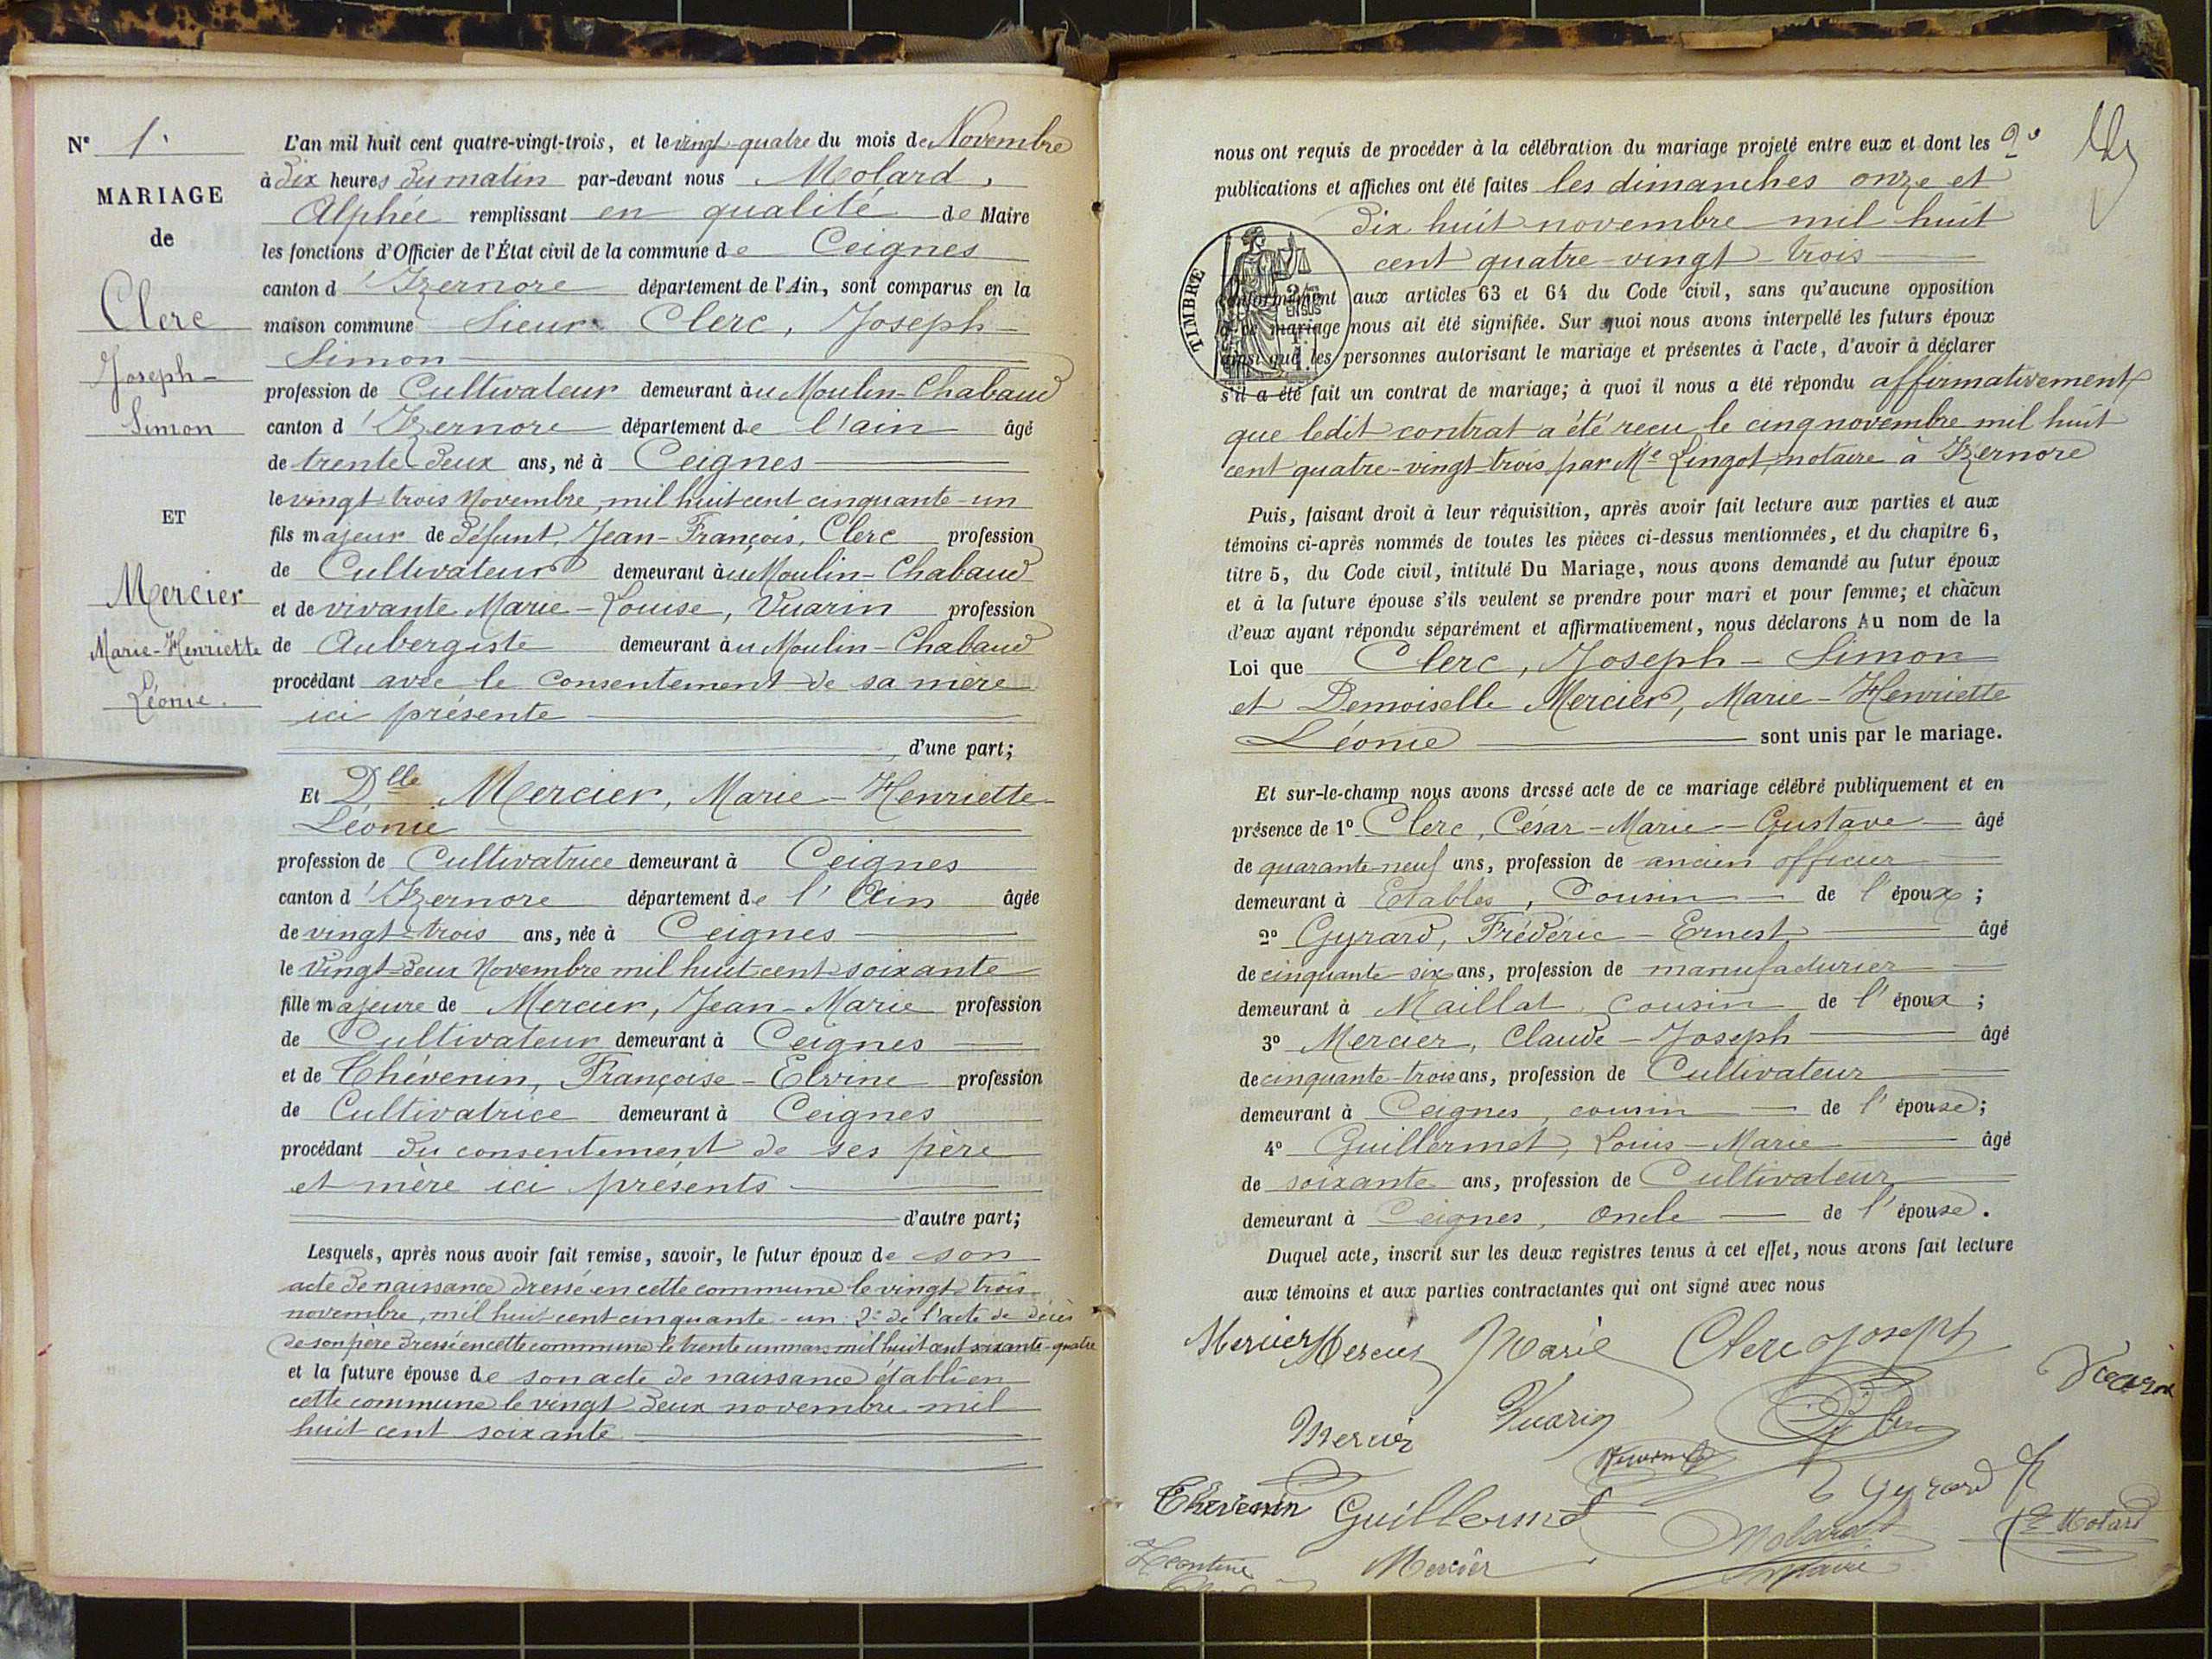 N° 1.
MARIAGE
de
Clerc
Joseph-
Simon
ET
Mercier
Marie-Henriette
Léonie.
L'an mil huit cent quatre-vingt-trois, et le vingt-quatre du mois de Novembre
à dix heures du matin par-devant nous Molard,
Alphée remplissant en qualité de Maire
les fonctions d'Officier de l'État civil de la commune de Ceignes
canton d'Izernore département de l'Ain, sont comparus en la
maison commune Sieur Clerc, Joseph-
Simon
profession de Cultivateur demeurant au Moulin-Chabaud
canton d'Izernore département de l'ain âgé
de trente deux ans, né à Ceignes
le vingt-trois Novembre, mil huit cent cinquante-un
fils majeur de défunt, Jean-François, Clerc profession
de Cultivateur demeurant àu Moulin-Chabaud
et de vivante Marie-Louise, Vuarin profession
de Aubergiste demeurant àu Moulin-Chabaud
procédant avec le consentement de sa mère
ici présente
d'une part;
Et Dlle Mercier, Marie-Henriette-
Léonie
profession de Cultivatrice demeurant à Ceignes
canton d'Izernore département de l'Ain âgée
de vingt-trois ans, née à Ceignes
le vingt-deux Novembre mil huit cent soixante
fille majeure de Mercier, Jean-Marie profession
de Cultivateur demeurant à Ceignes
et de Thévenin, Françoise-Elvine profession
de Cultivatrice demeurant à Ceignes
procédant du consentement de ses père
et mère ici présents
d'autre part;
Lesquels, après nous avoir fait remise, savoir, le futur époux de son
acte de naissance dressé en cette commune le vingt-trois
novembre, mil huit cent cinquante-un 2° de l'acte de décès
de son père dressé en cette commune le trente un mars mil huit cent soixante-quatre
et la future épouse de son acte de naissance établi en
cette commune le vingt deux novembre mil
huit cent soixante
nous ont requis de procéder à la célébration du mariage projeté entre eux et dont les 2°
publications et affiches ont été faites les dimanches onze et
dix huit novembre mil huit
cent quatre-vingt-trois
TIMBRE
conformément aux articles 63 et 64 du Code civil, sans qu'aucune opposition
à ce mariage nous ait été signifiée. Sur quoi nous avons interpellé les futurs époux
ainsi que les personnes autorisant le mariage et présentes à l'acte, d'avoir à déclarer
s'il a été fait un contrat de mariage; à quoi il nous a été répondu affirmativement
que ledit contrat a été reçu le cinq novembre mil huit
cent quatre-vingt-trois par Me Lingot, notaire à Izernore
Puis, faisant droit à leur réquisition, après avoir fait lecture aux parties et aux
témoins ci-après nommés de toutes les pièces ci-dessus mentionnées, et du chapitre 6,
titre 5, du Code civil, intitulé Du Mariage, nous avons demandé au futur époux
et à la future épouse s'ils veulent se prendre pour mari et pour femme; et chacun
d'eux ayant répondu séparément et affirmativement, nous déclarons Au nom de la
Loi que Clerc, Joseph-Simon
et Demoiselle Mercier, Marie-Henriette
Léonie sont unis par le mariage.
Et sur-le-champ nous avons dressé acte de ce mariage célébré publiquement et en
présence de 1° Clerc, César-Marie-Gustave âgé
de quarante-neuf ans, profession de ancien officier
demeurant à Etables, Cousin de l'époux;
2° Gyrard, Frédéric-Ernest âgé
de cinquante-six ans, profession de manufacturier
demeurant à Maillat, cousin de l'époux;
3° Mercier, Claude-Joseph âgé
de cinquante-trois ans, profession de Cultivateur
demeurant à Ceignes, cousin de l'épouse;
4° Guillermet, Louis-Marie âgé
de soixante ans, profession de Cultivateur
demeurant à Ceignes, Oncle de l'épouse.
Duquel acte, inscrit sur les deux registres tenus à cet effet, nous avons fait lecture
aux témoins et aux parties contractantes qui ont signé avec nous
Mercier Mercier Marie Clerc Joseph
Vuarin
Mercier Vuarin
Gyrard
Thévenin Guillermet
Molard
Molard
Maire
Mercier